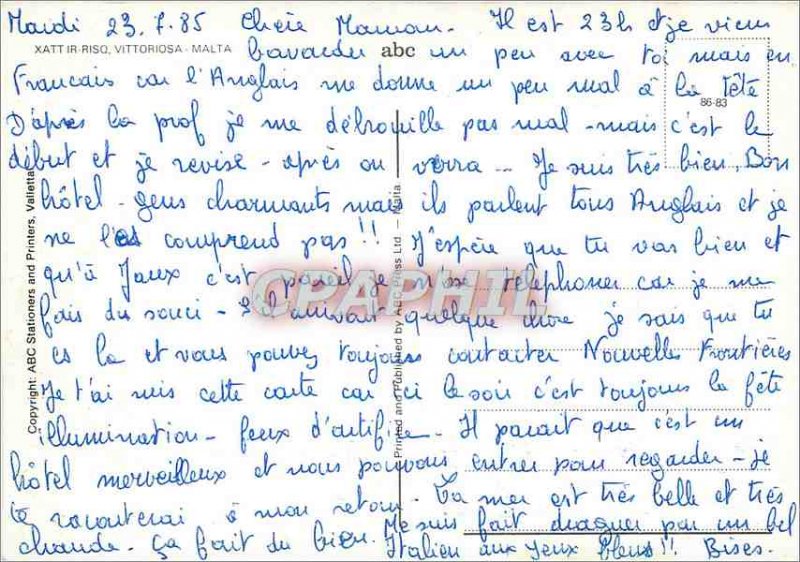 Mardi 23.7.85 Chère Maman. Il est 23h et je viens
XATT IR-RISQ, VITTORIOSA - MALTA
bavarder abc un peu avec toi mais en
Francais car l'Anglais me donne un peu mal à la tête
86-83
D'après la prof je me débrouille pas mal - mais c'est le
début et je revise - après on verra... Je suis très bien, Bon
hôtel - gens charmants mais ils parlent tous Anglais et je
ne les comprend pas !! J'espère que tu vas bien et
qu'à Jaux c'est pareil je n'ose telephoner car je me
fais du souci - S'il arrivait quelque chose je sais que tu
es la et vous pouvez toujours contacter Nouvelles Frontières
Je t'ai mis cette carte car ici le soir c'est toujours la fête
illumination - feux d'artifice. Il parait que c'est un
hôtel merveilleux et nous pouvons entrer pour regarder - je
te raconterai à mon retour. La mer est très belle et très
chaude. ça fait du bien. Je suis fait draguer par un bel
Italien aux yeux bleus !! Bises.
Copyright: ABC Stationers and Printers, Valletta
Printed and Published by ABC Press Ltd — Malta
CPAPHIL